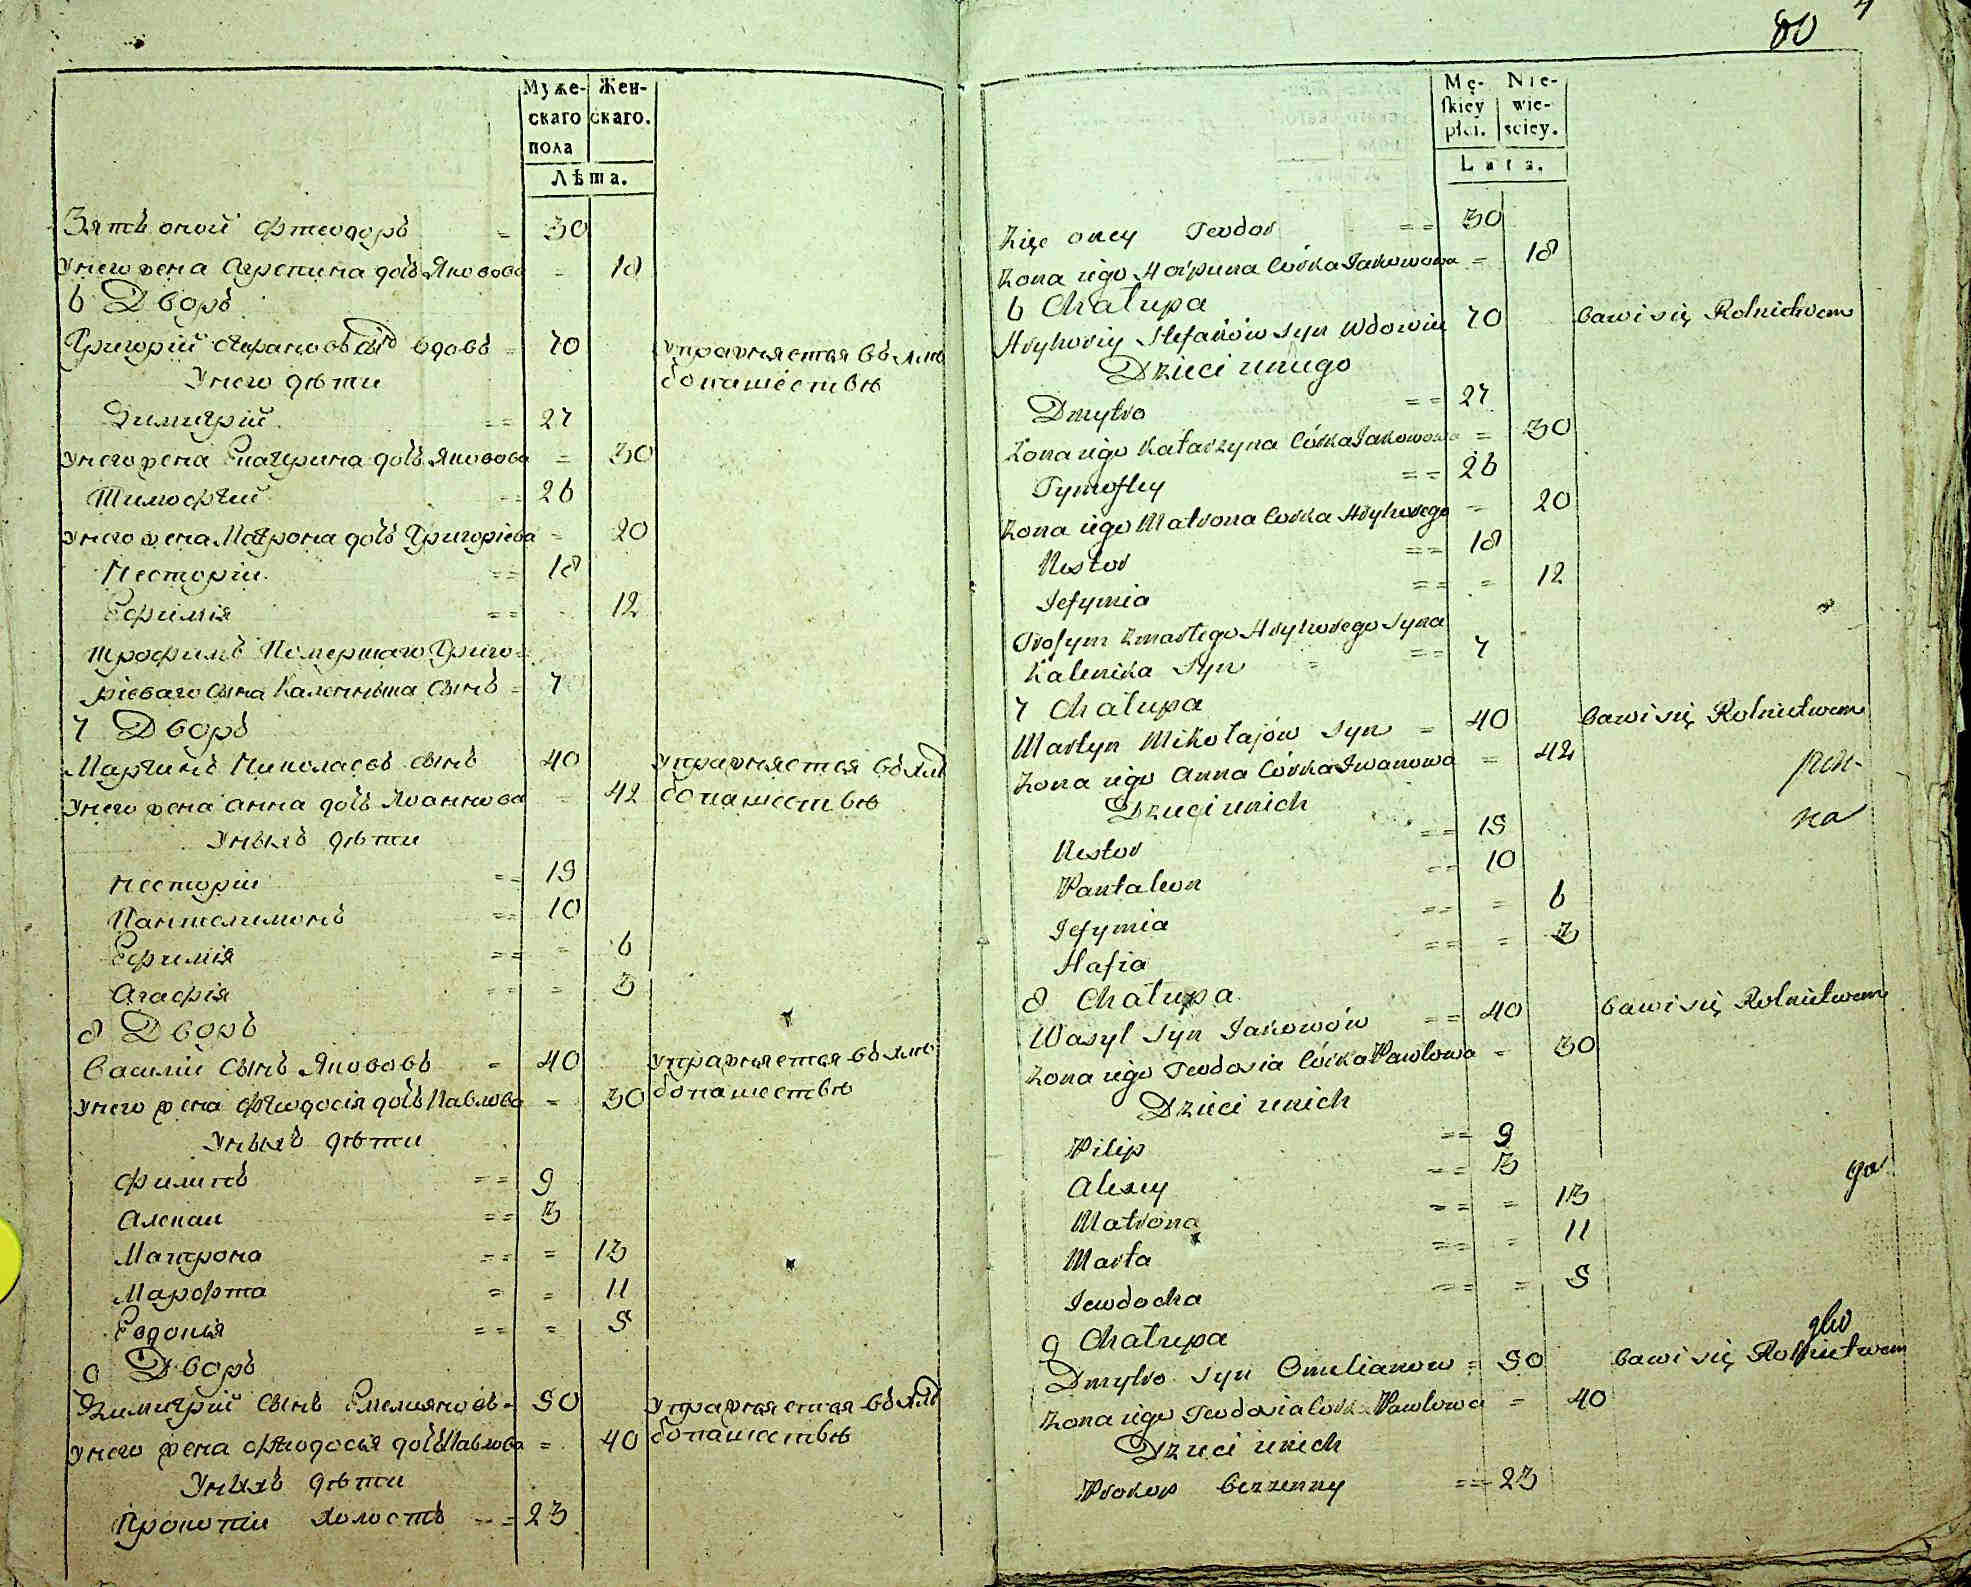 80
Муже-
скаго
пола
Жен-
скаго.
Лѣта.
Зять оной Фтеодоръ = 30
Унего жена Агрепина дочь Яковова = 18
6 Дворъ
Григорій сынъ вдовъ = 70 упражняется въ хлѣ
Унего дѣти бопашествѣ
Димитрій == 27
Унего жена Екатерина дочь Яковова = 30
Тимофѣй == 26
Унего жена Матрона дочь Григоріева = 20
Несторіи == 18
Ефимія == 12
Трофимъ Помершаго Григо-
ріеваго сына Каленныка сынъ = 7
7 Дворъ
Мартинъ Николаевъ сынъ 40 упражняется въ хлѣ
Унего жена Анна дочь Иоаннова = 42 бопашествѣ
Унихъ дѣти
Несторіи == 15
Пантелимонъ == 10
Ефимія == = 6
Агафія == = 3
8 Дворъ
Василій сынъ Якововъ = 40 упражняется въ хлѣ
Унего жена Фѣодосія дочь Павлова = 30 бопашествѣ
Унихъ дѣти
Филипъ == 9
Алексѣи == 3
Матрона == = 13
Марфта = = 11
Евдокія == = 5
9 Дворъ
Димитрій сынъ Емелияновъ = 50 упражняется въ хлѣ
Унего жена Фѣодосья дочь Павлова = 40 бопашествѣ
Унихъ дѣти
Прокопіи холостъ == 23
Mę-
skiey
płci.
Nie-
wie-
sciey.
Lata.
Zięc oney Teodor == 30
Zona iego Horpuna Córka Jakowowa = 18
6 Chałupa
Hryhoriy Stefanów syn Wdowiec 70 bawi się Rolnictwem
Dzieci unego
Dmytro == 27
Zona iego Katarzyna Córka Jakowowa = 30
Tymofiey == 26
Zona iego Matrona Corka Hryhorego = 20
Nestor == 18
Jefymia == = 12
Trofym zmarłego Hryhorego syna
Kalenika syn = == 7
7 Chałupa
Martyn Mikołajów syn = 40 bawi się Rolnictwem
Zona iego Anna Córka Iwanowa = 42
Dzieci unich
na
Nestor == 15
Pantaleon == 10
Jefymia == = 6
Hafia == = 3
8 Chałupa
Wasyl syn Jakowów == 40 bawi się Rolnictwem
Zona iego Teodosia Córka Pawłowa = 30
Dzieci unich
Pilip == 9
Alexey == 3
Matrona == = 13
Marta == = 11
Jewdocha == = 5
9 Chałupa
Dmytro syn Omelianow = 50 bawi się Rolnictwem
Zona iego Teodosia Cork Pawłowa = 40
Dzieci unich
Prokop bezzenny == 23